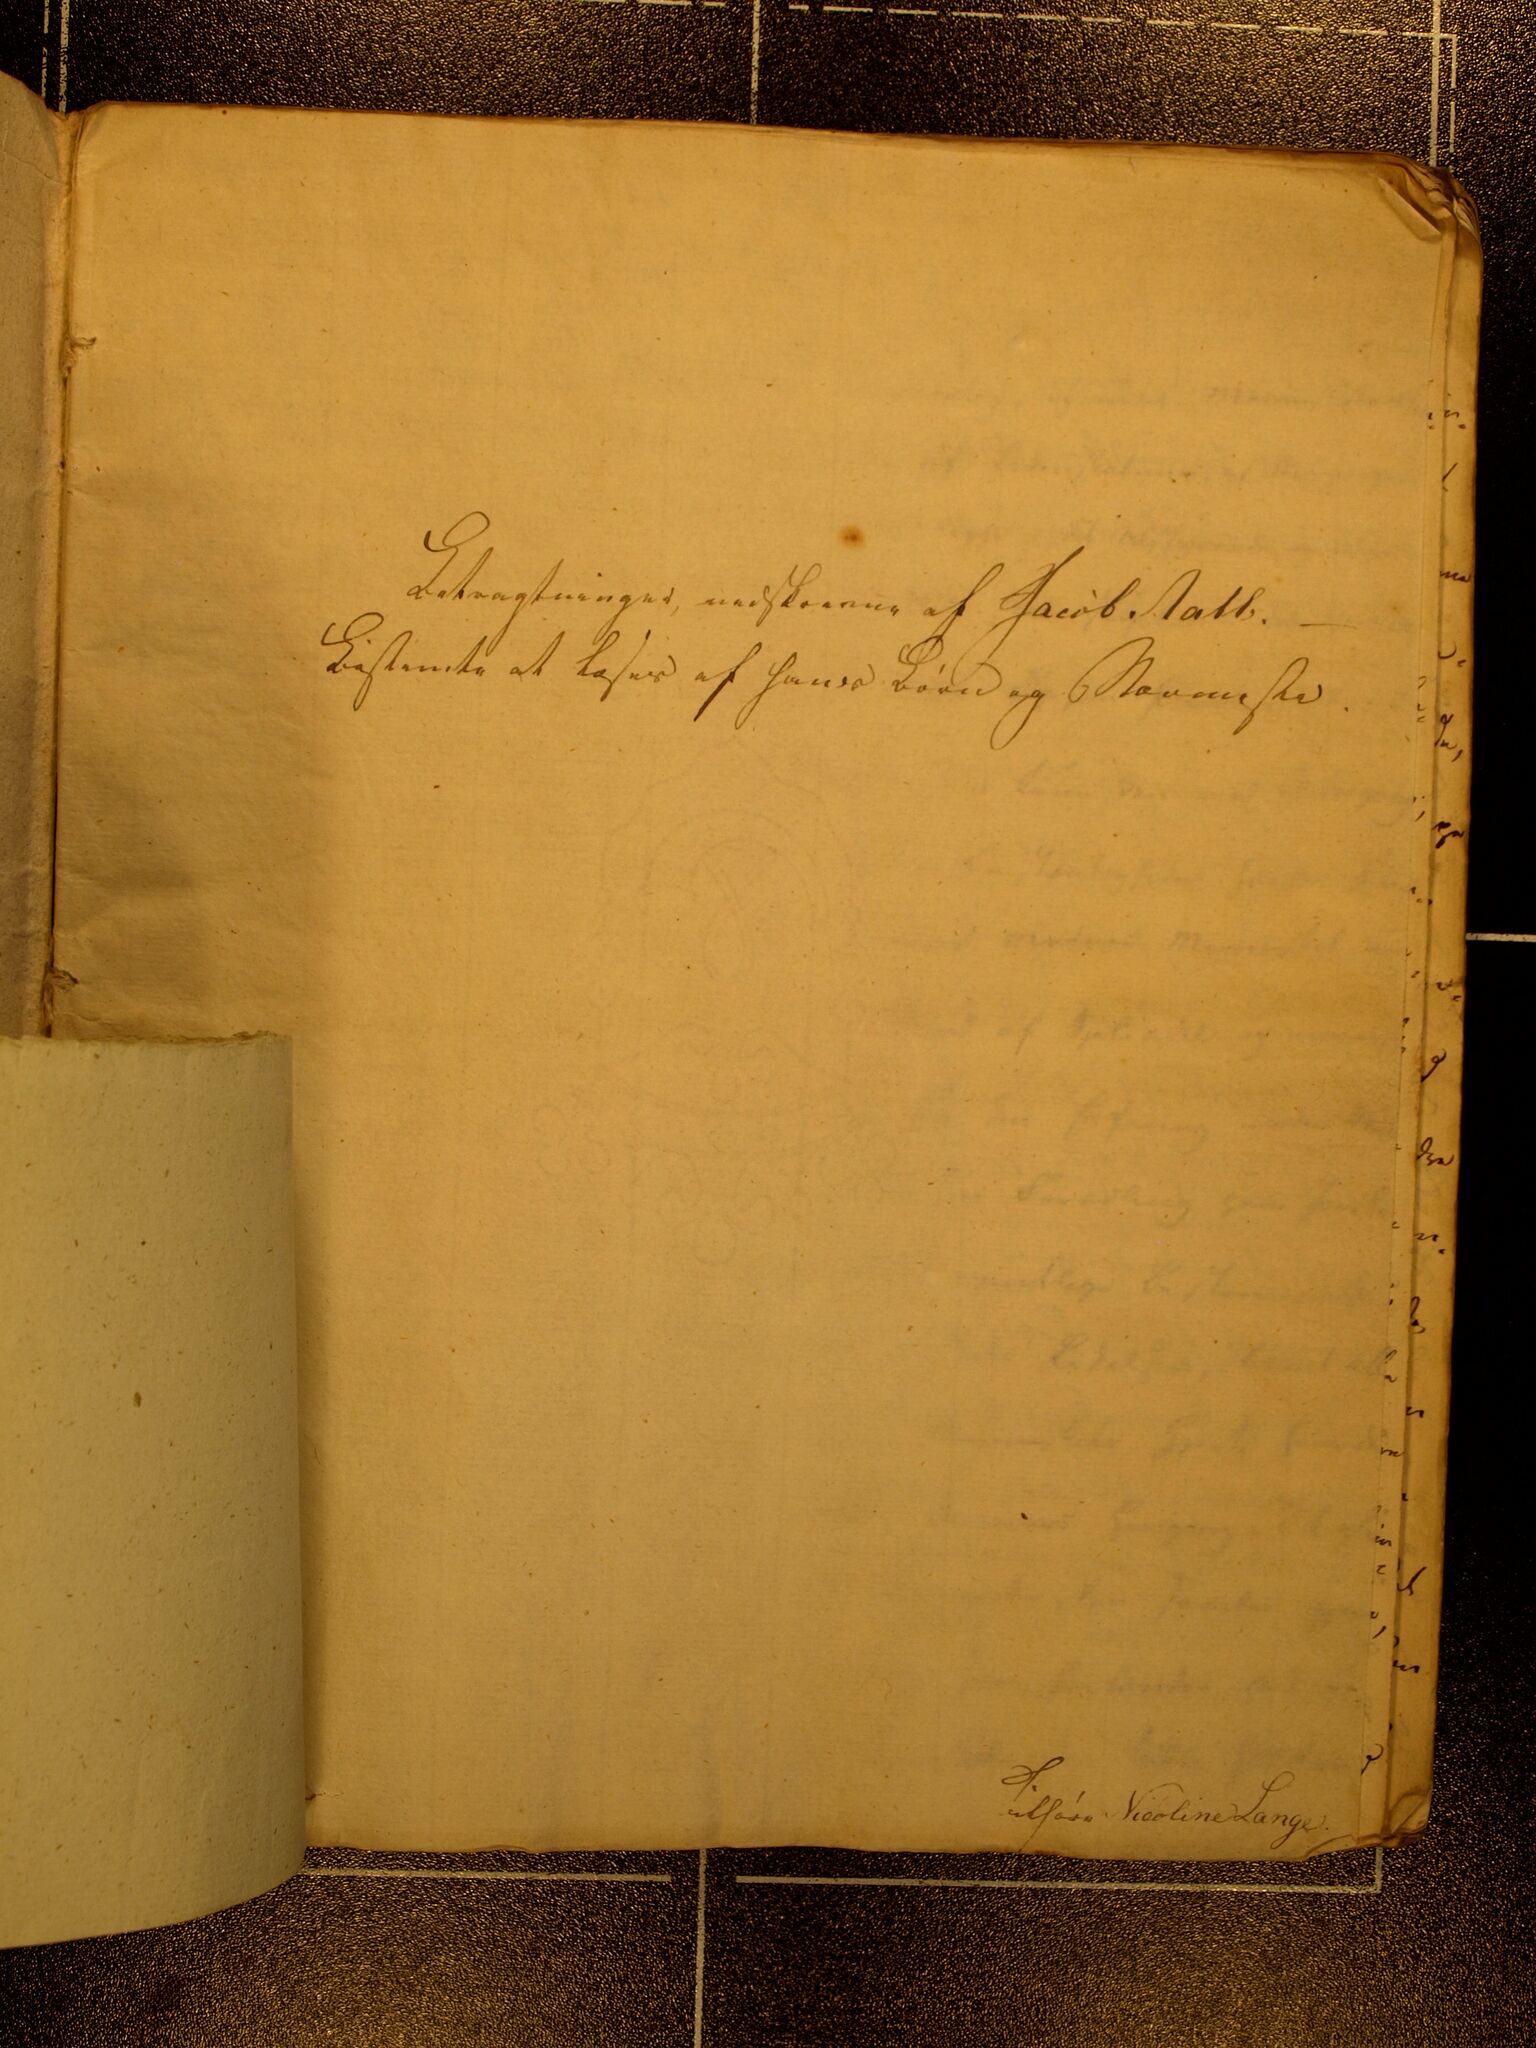 Betragtninger, nedskrevne af Jacob Aall. —
Bestemte at læses af hans Børn og Nærmeste.
Tilhører Nicoline Lange.